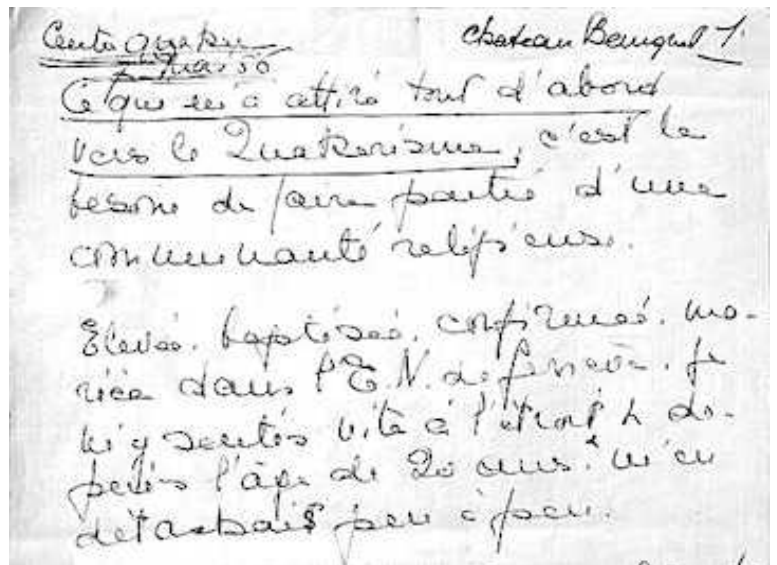 Centre Quaker Château Banquet 1.
mars 50
Ce qui m'a attiré tout d'abord
vers le Quakerisme, c'est le
besoin de faire partie d'une
communauté religieuse.
Elevée, baptisée, confirmée, ma-
riée dans l'E.N. de Genève, je
m'y sentis vite à l'étroit & de-
puis l'âge de 20 ans m'en
détachais peu à peu.